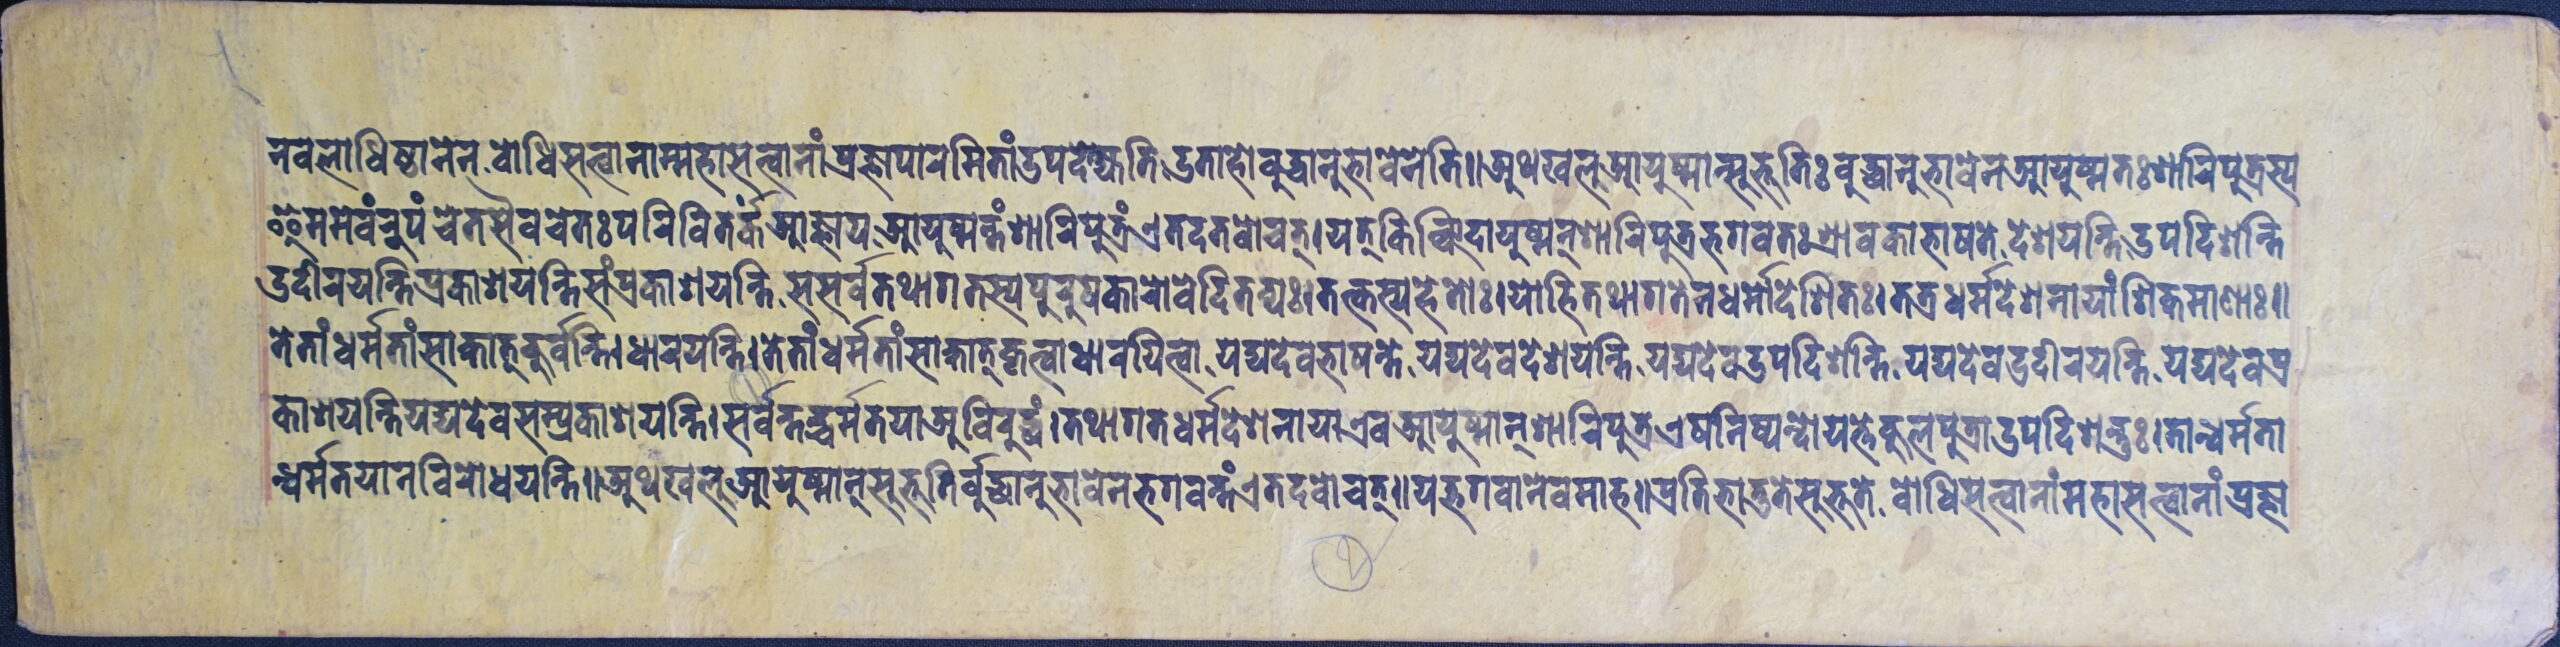 नवलाधिष्ठानेन वोधिसत्त्वानाम्महासत्त्वानां प्रज्ञापारमितांउपदेक्ष्यति उताहोवुद्धानुभावेनेति॥अथखलुआयुष्मान्सुभूतिःवुद्धानुभावेनआयुष्मतःशारिपुत्रस्य
इममेवंरूपंचेतसैवचेतःपरिवितर्कंआज्ञाय आयुष्मन्तंशारिपुत्रंएतदतवोचत्।यत्किञ्चिदायुष्मन्शारिपुत्रभगवतःश्रावकाभाषन्ते देशयन्ति उपदिशन्ति
उदीरयन्तिप्रकाशयन्तिसंप्रकाशयन्ति ससर्वतथागतस्यपुरुषकारोवेदितव्यः।तत्कस्यहेतोः।योहितथागतेनधर्मोदेशितः।तत्रधर्मदेशनायांशिक्षमाणाः॥
तेतांधर्मतांसाक्षात्कुर्वन्ति।धारयन्ति।तेतांधर्मतांसाक्षात्कृत्वाधारयित्वा यद्यदेवभाषन्ते यद्यदेवदेशयन्ति यद्यदेवउपदिशन्ति यद्यदेवउदीरयन्ति यद्यदेवप्र
काशयन्तियद्यदेवसम्प्रकाशयन्ति।सर्वन्तद्धर्मतयाअविरुद्धं।तथागतधर्मदेशनायाएवआयुष्मान्शारिपुत्रएषनिष्यन्दोयत्तेकुलपुत्राउपदिशन्तुः।तान्धर्मता
न्धर्मतयानविरोधयन्ति॥अथखलुआयुष्मान्सुभूतिर्वुद्धानुभावेनभगवन्तंएतदवोचत्॥यद्भगवानेवमाह॥प्रतिभातुतेसुभूते वोधिसत्त्वानांमहासत्त्वानां प्रज्ञा
२